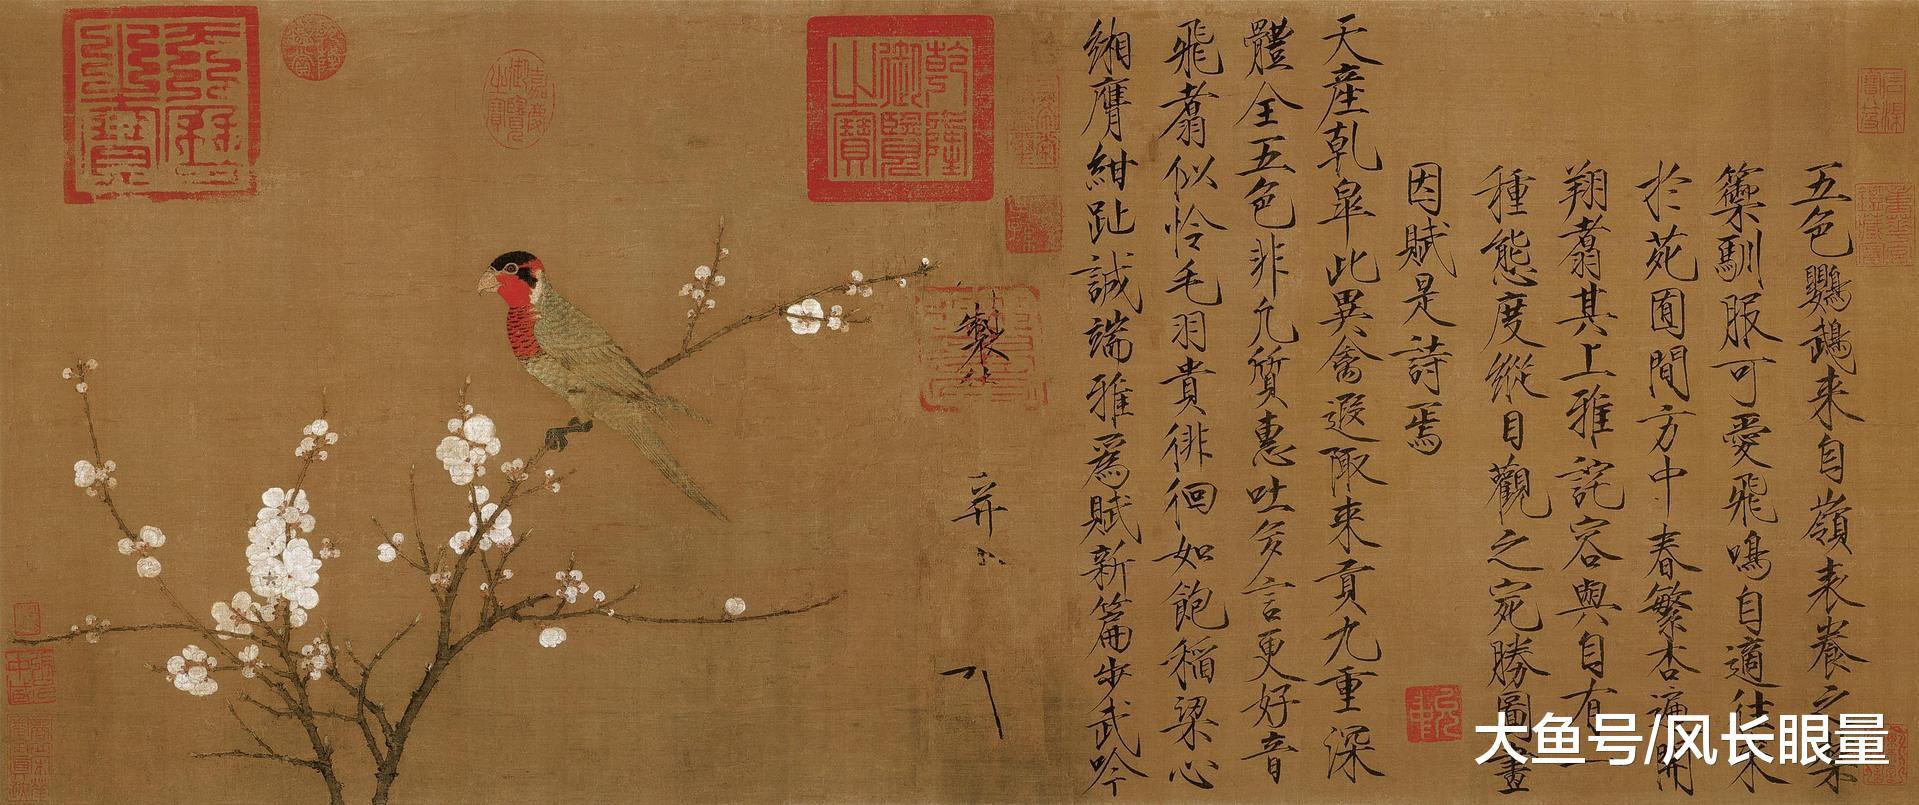 五色鸚鵡来自嶺表養之禁
籞馴服可愛飛鳴自適往来
於苑囿間方中春繁杏遍開
翔翥其上雅詫容與自有一
種態度縱目觀之宛勝圖畫
因賦是詩焉
天産乾皐此異禽遐陬来貢九重深
體全五色非凡質惠吐多言更好音
飛翥似怜毛羽貴徘徊如飽稻粱心
緗膺紺趾誠端雅爲賦新篇步武吟
製
并
乾隆御覽之寶
嘉慶御覽之寶
大鱼号/风长眼量